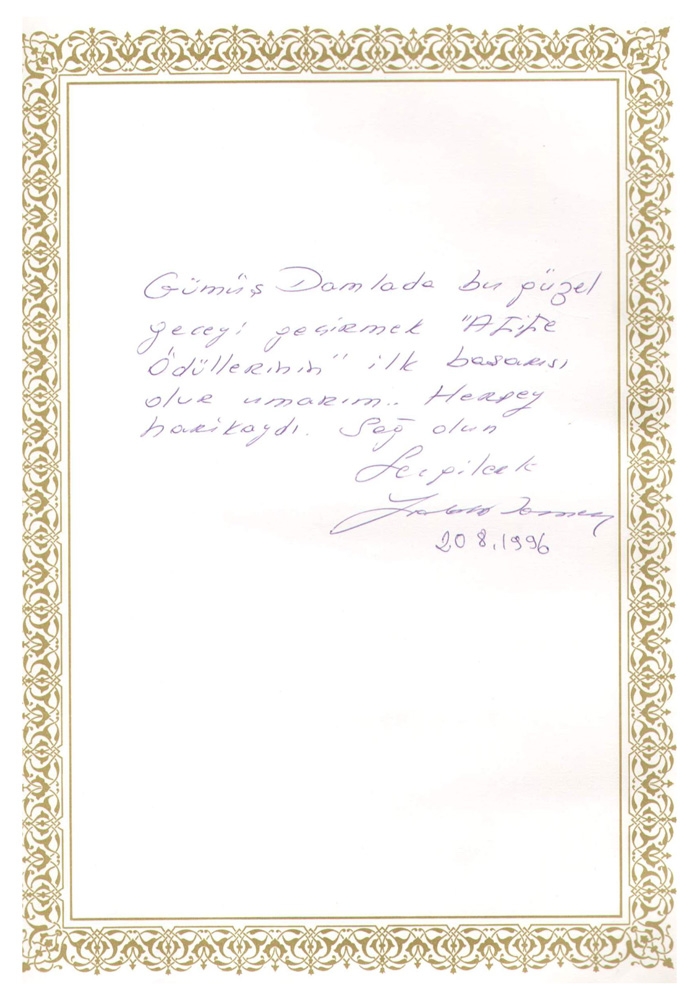 Gümüş Damlada bu güzel
geceyi geçirmek "Afife
Ödüllerinin" ilk başarısı
olur umarım.. Herşey
harikaydı. Sağ olun
Sevgilerle
20 8.1996